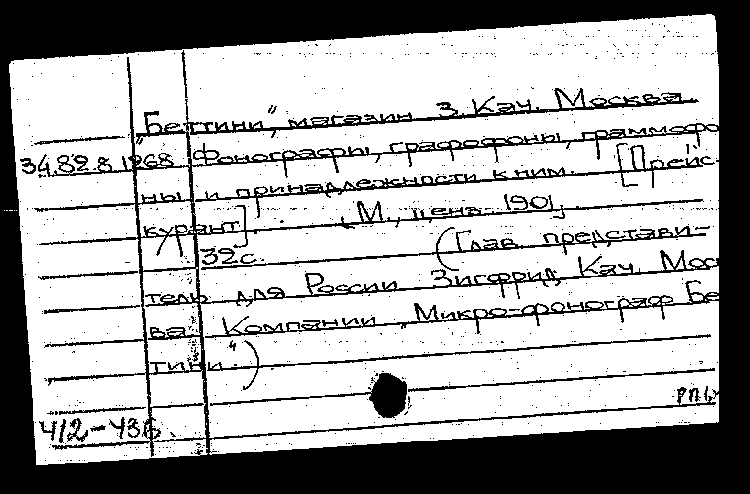 „Беттини“, магазин З. Кач. Москва.
34.82.8.1268 Фонографы, графофоны, граммофо
ны и принадлежности к ним. [Прейс-
курант]. (М., ценз. 1901).
32с. (Глав. представи-
тель для России Зигфрид Кач. Мос
ва Компании „Микро-фонограф Бе
тини“)
412-43Б.